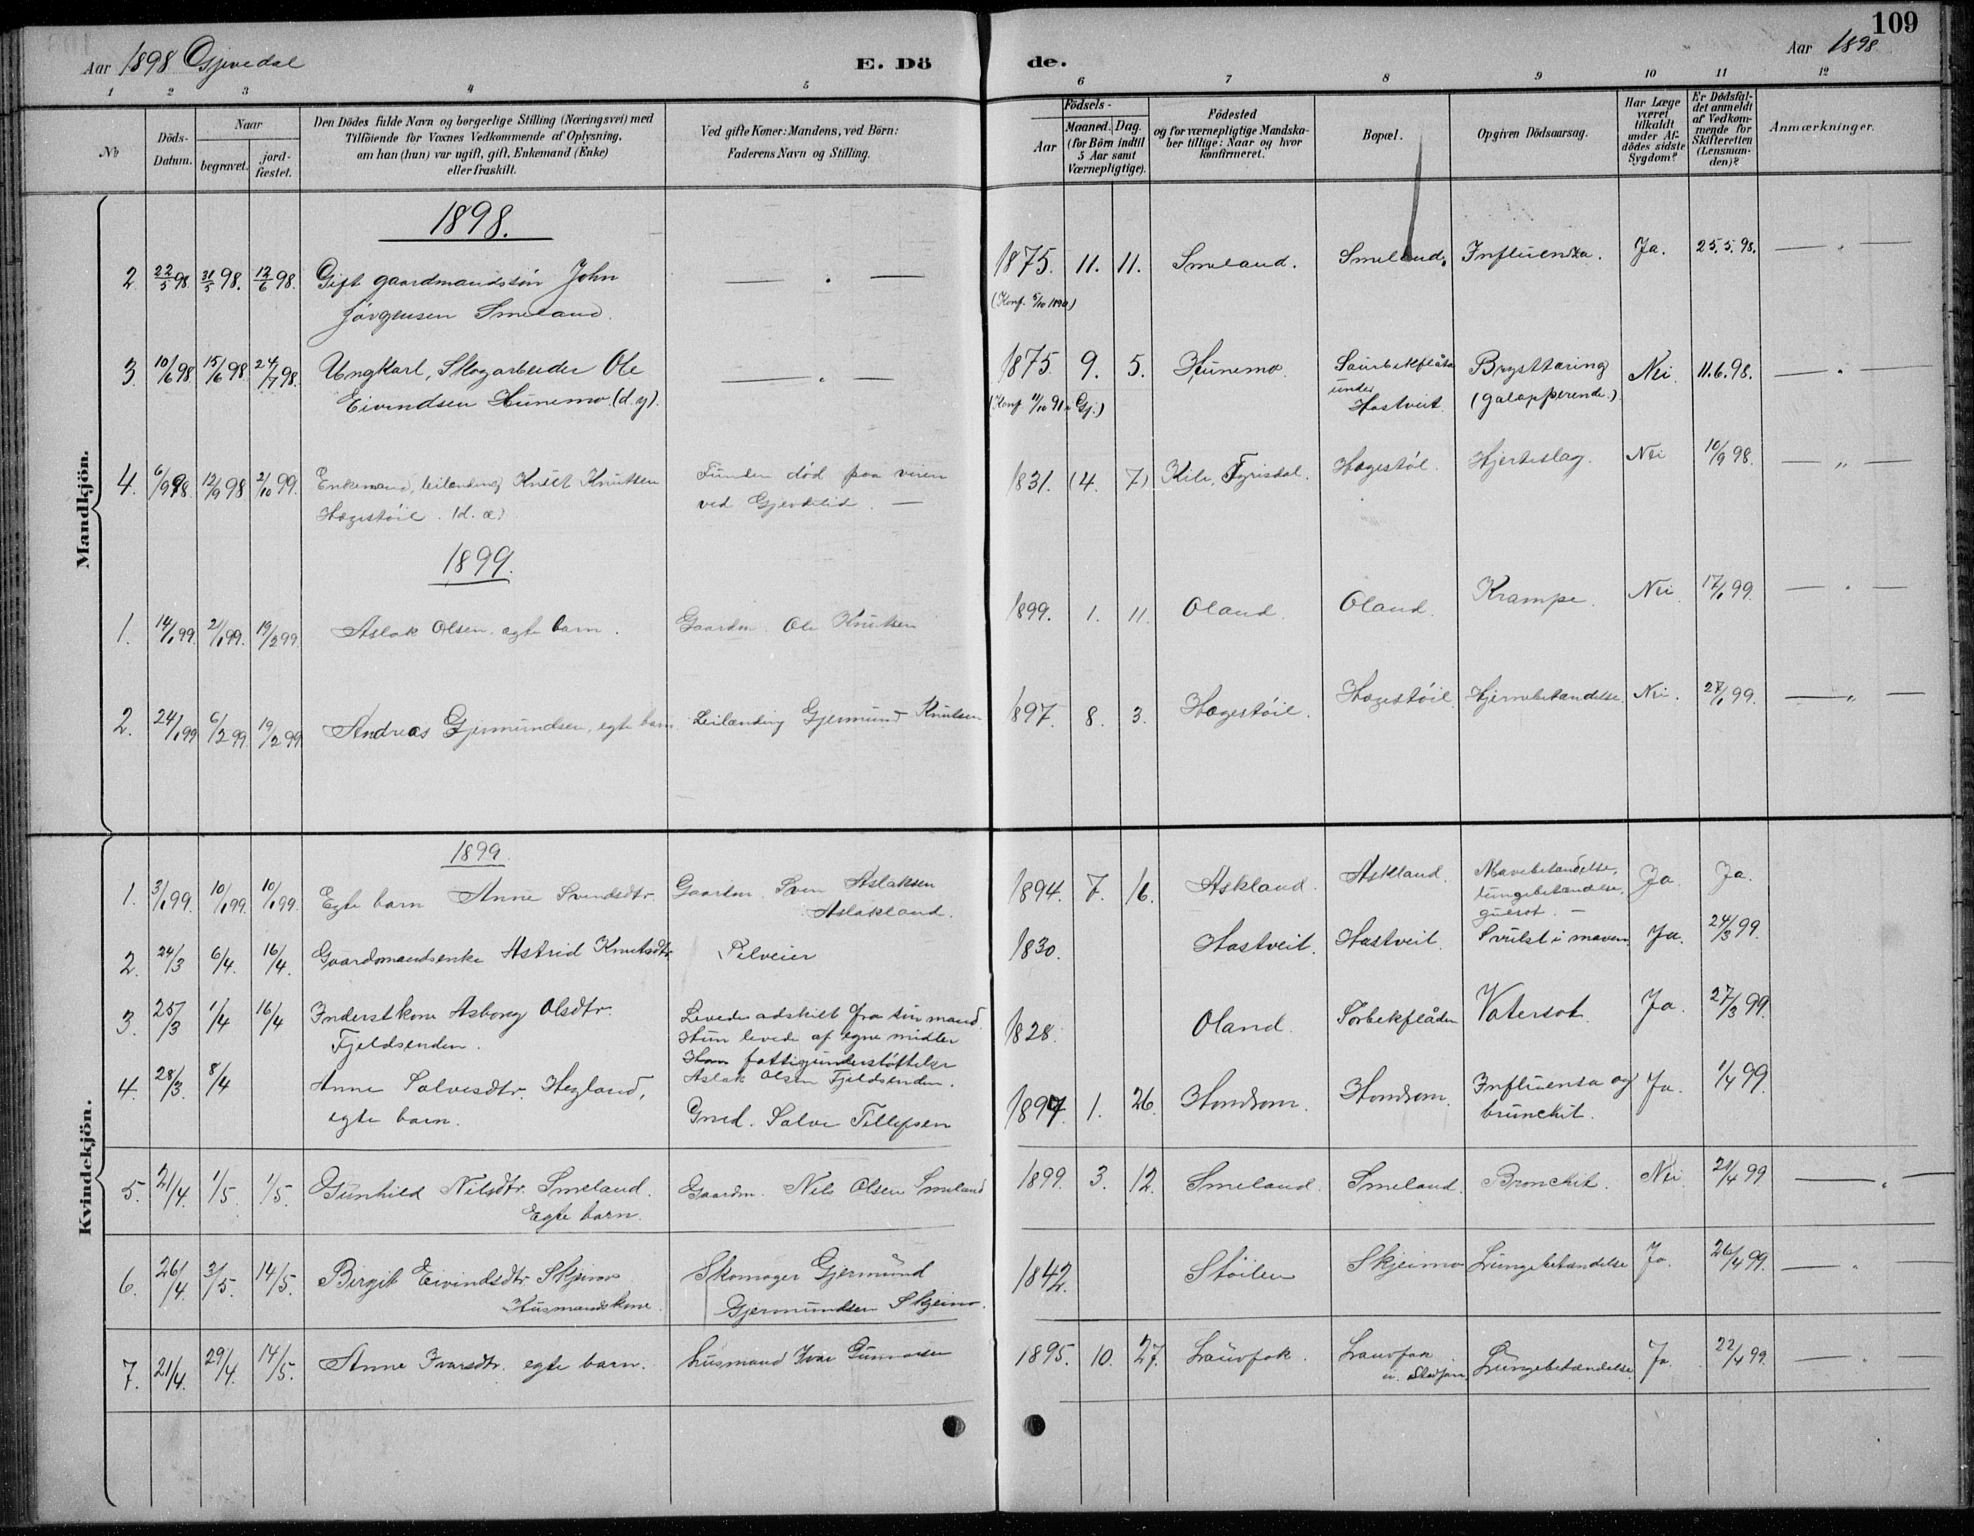 109
Aar 1898 Gjevedal E. Dö
de. Aar 1898
1 2 3 4 5 6 7 8 9 10 11 12
No
Döds-
Datum.
Naar
begravet.
jord-
fæstet.
Den Dödes fulde Navn og borgerlige Stilling (Næringsvei) med
Tilföiende for Voxnes Vedkommende af Oplysning,
om han (hun) var ugift, gift, Enkemand (Enke)
eller fraskilt.
Ved gifte Koner: Mandens, ved Börn:
Faderens Navn og Stilling.
Födsels-
Aar
Maaned. Dag.
(for Börn indtil
5 Aar samt
Værnepligtige).
Födested
og for værnepligtige Mandska-
ber tillige: Naar og hvor
konfirmeret.
Bopæl.
Opgiven Dödsaarsag.
Har Læge
været
tilkaldt
under Af-
dödes sidste
Sygdom?
Er Dödsfal-
det anmeldt
af Vedkom-
mende for
Skifteretten
(Lensman-
den)?
Anmærkninger.
Mandkjön.
1898.
2 22/5 98 31/5 98. 12/6 98. Gift gaardmandssön John — " — 1875. 11. 11. Smeland. Smeland. Influenza. Ja. 25.5.98. — " —
Jörgensen Smeland. (Konf. 5/10 1890)
3 10/6 98 15/6 98 24/7 98. Ungkarl, Skogarbeider Ole — " — 1875. 9. 5. Hunemo. Saurbekflåten Brysttæring Nei. 11.6.98. — " —
Eivindsen Hunemo (d.y). (Konf. 11/10 91 i Gj.) under Hastveit (galopperende.)
4. 6/9 98. 12/9 98 2/10 99. Enkemand, leilænding Knut Knutsen Funden död paa veien 1831. (4. 7) Kile, Fyrisdal. Hægestöl. Hjerteslag. Nei 10/9 98. — " —
Hægestöil. (d. æ) ved Gjevdelid. —
1899.
1. 14/1 99. 21/1 99. 19/2 99 Aslak Olsen, egte barn. Gaardm. Ole Knutsen 1899. 1. 11. Oland. Oland. Krampe. Nei. 17/1 99. — " —
2. 24/1 99 6/2 99. 19/2 99 Andreas Gjermundsen, egte barn. Leilænding Gjermund Knutsen 1897. 8. 3. Hægestöil. Hægestöil. Hjernebetændelse. Nei. 27/1 99. — " —
Kvindekjön.
1899.
1. 3/1 99. 10/1 99. 10/1 99 Egte barn Anne Svendsdtr. Gaardm. Sven Aslaksen 1894. 7. 16. Askland. Askland. Mavebetændelse, Ja. Ja.
Aslakland. lungebetændelse,
gulsot. —
2. 24/3 6/4. 16/4. Gaardmandsenke Astrid Knutsdtr. Pelveier 1830. Hastveit. Hastveit. Svulst i maven. Ja. 24/3 99.
3. 25/3 1/4 16/4 Inderstkone Asborg Olsdtr. Levede adskilt fra sin mand. 1828. Oland. Sörbekflåden Vatersot. Ja. 27/3 99.
Fjeldsenden. Hun levede af egne midler
Han fattigunderstöttelse
Aslak Olsen Fjeldsenden.
4. 28/3. 8/4 Anne Salvesdtr. Hegland, Gmd. Salve Tellefsen 1897. 1. 26. Homdrom. Homdrom. Influensa og Ja. 1/4 99.
egte barn. brunchit.
5. 21/4. 1/5 1/5. Gunhild Nilsdtr. Smeland. Gaardm. Nils Olsen Smeland 1899. 3. 12. Smeland. Smeland. Bronchit. Nei. 21/4 99 — " —
Egte barn.
6. 26/4. 3/5. 14/5. Birgit Eivindsdtr. Skjeimo Skomager Gjermund 1842. Stöilen Skjeimo Lungebetændelse Ja. 26/4 99. — " —
Husmandskone. Gjermundsen Skjeimo.
7. 21/4. 29/4. 14/5. Anne Ivarsdtr. egte barn. husmand Ivar Gunnarsen 1895. 10. 27. Lauvfok. Lauvfok Lungebetændelse. Ja. 22/4 99. — " —